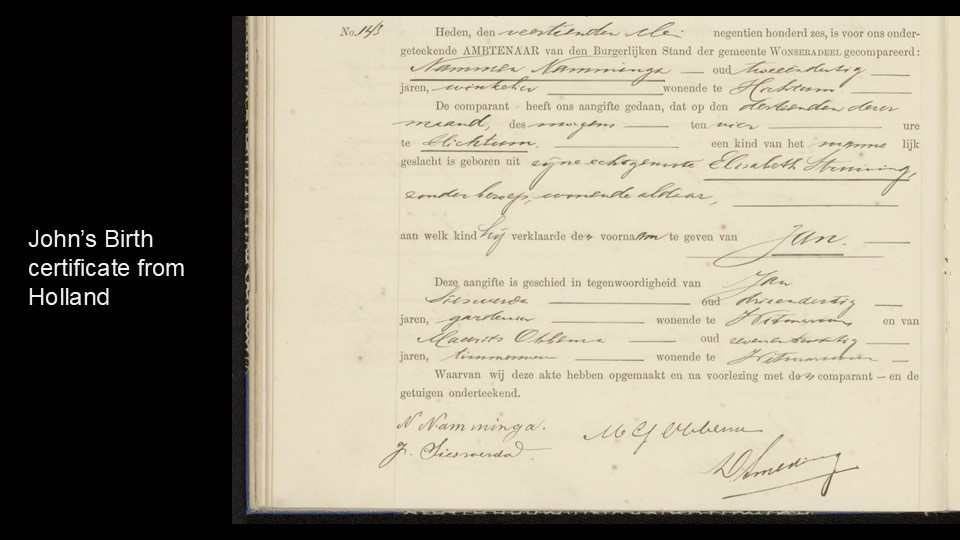 John's Birth
certificate from
Holland
No. 143
Heden, den veertienden Mei negentien honderd zes, is voor ons onder-
geteekende AMBTENAAR van den Burgerlijken Stand der gemeente WONSERADEEL gecompareerd:
Nammen Namminga oud tweeendertig
jaren, winkelier wonende te
De comparant heeft ons aangifte gedaan, dat op den dertienden dezer
maand, des morgens ten vier ure
te een kind van het manne lijk
geslacht is geboren uit zijne echtgenoote Elisabeth
zonder beroep, wonende aldaar,
aan welk kind hij verklaarde den voornaam te geven van Jan.
Deze aangifte is geschied in tegenwoordigheid van Jan
Sieswerda oud drieendertig
jaren, gardenier wonende te Witmarsum en van
Maurits Obbema oud zevenentwintig
jaren, timmerman wonende te Witmarsum
Waarvan wij deze akte hebben opgemaakt en na voorlezing met den comparant – en de
getuigen onderteekend.
N Namminga.
M G Obbema
J. Sieswerda.
DSmeding